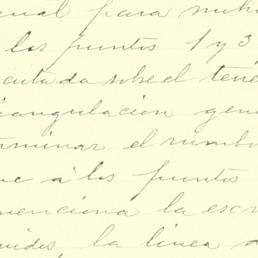 para
los puntos 1 y 3
cutada sobre el terre
riangulación gene
rminar el rumbo
ue á los puntos
menciona la escr
uides, la linea d